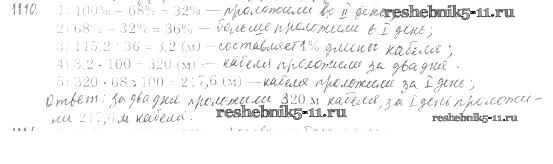 1110. 1) 100% - 68% = 32% - проложили во II день;
2) 68% - 32% = 36% - больше проложили в I день;
3) 115,2 : 36 = 3,2 (м) - составляет 1% длины кабеля;
4) 3,2 · 100 = 320 (м) - кабеля проложили за два дня.
5) 320 · 68 : 100 = 217,6 (м) - кабеля проложили за I день;
Ответ: за два дня проложили 320 м кабеля, за I день проложи-
ли 217,6 м кабеля.
www.reshebnik5-11.ru
www.reshebnik5-11.ru
www.reshebnik5-11.ru